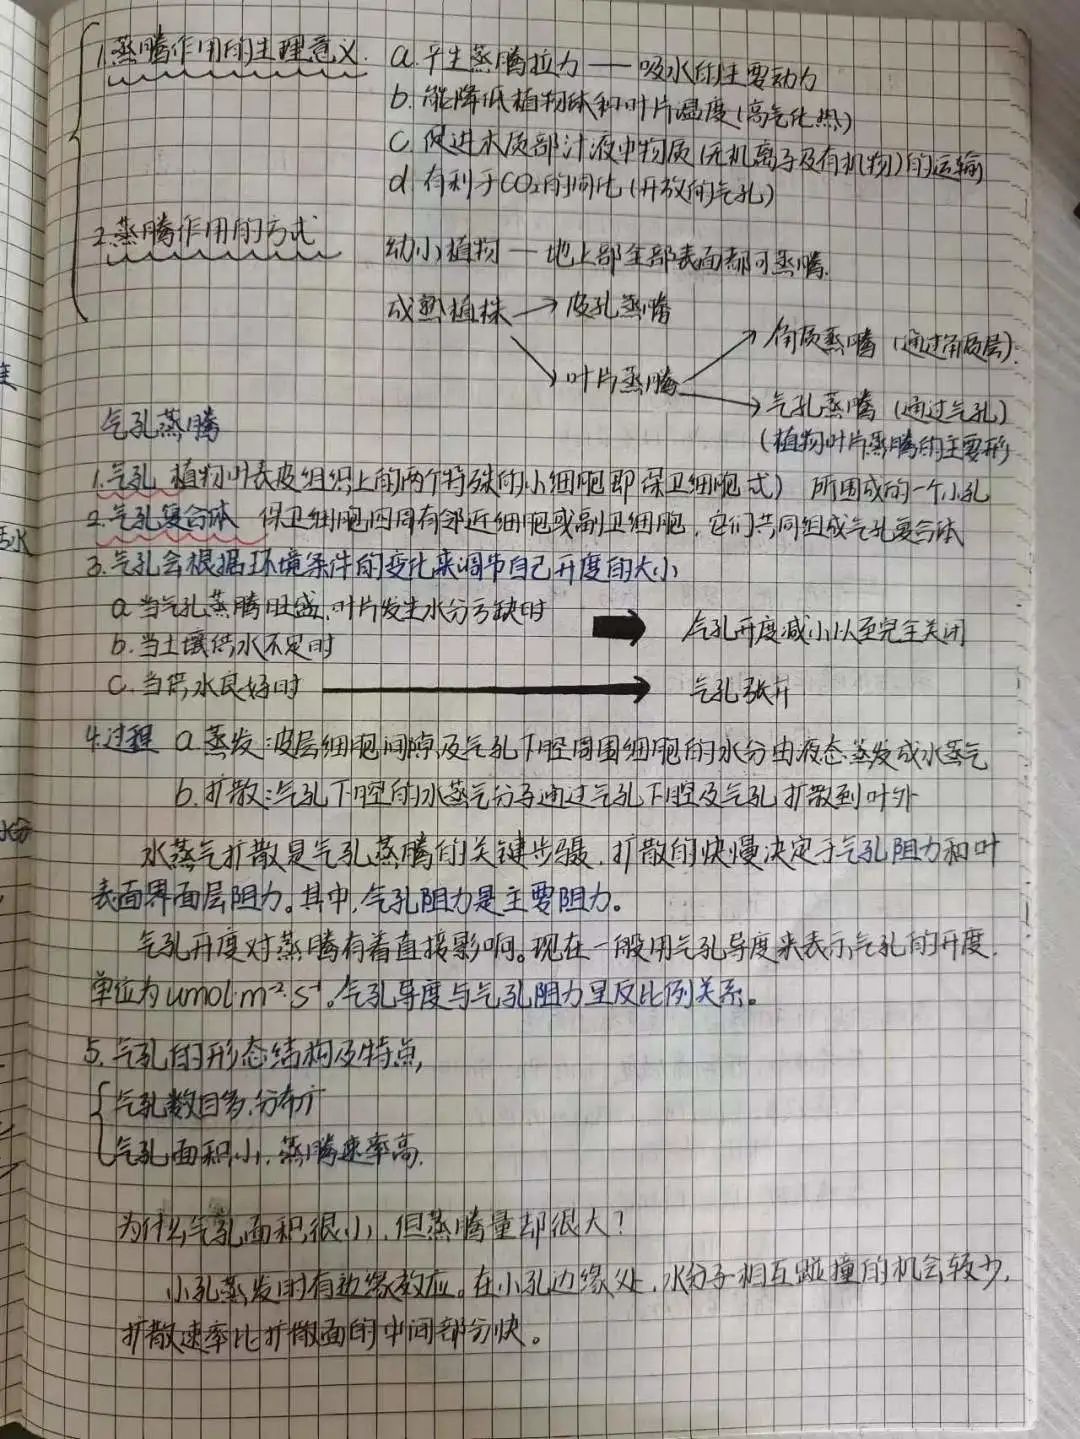 1.蒸腾作用的生理意义. a.产生蒸腾拉力——吸水的主要动力
b.能降低植物体和叶片温度(高气化热)
c.促进木质部汁液中物质(无机离子及有机物)的运输
d.有利于CO₂的同化(开放的气孔)
2.蒸腾作用的方式
幼小植物—地上部全部表面都可蒸腾.
成熟植株→皮孔蒸腾
→叶片蒸腾
→角质蒸腾(通过角质层).
→气孔蒸腾(通过气孔)
(植物叶片蒸腾的主要形
气孔蒸腾
1.气孔 植物叶表皮组织上的两个特殊的小细胞即保卫细胞 式) 所围成的一个小孔
2.气孔复合体 保卫细胞四周有邻近细胞或副卫细胞,它们共同组成气孔复合体
3.气孔会根据环境条件的变化来调节自己开度的大小
a.当气孔蒸腾旺盛,叶片发生水分亏缺时
b.当土壤供水不足时
→ 气孔开度减小以至完全关闭
c.当供水良好时 → 气孔张开
4.过程 a.蒸发:皮层细胞间隙及气孔下腔周围细胞的水分由液态蒸发成水蒸气
b.扩散:气孔下腔的水蒸气分子通过气孔下腔及气孔扩散到叶外
水蒸气扩散是气孔蒸腾的关键步骤,扩散的快慢决定于气孔阻力和叶
表面界面层阻力。其中,气孔阻力是主要阻力。
气孔开度对蒸腾有着直接影响。现在一般用气孔导度来表示气孔的开度.
单位为umol·m⁻²·s⁻¹。气孔导度与气孔阻力呈反比例关系。
5.气孔的形态结构及特点,
气孔数目多,分布广
气孔面积小,蒸腾速率高.
为什么气孔面积很小,但蒸腾量却很大?
小孔蒸发时有边缘效应。在小孔边缘处,水分子相互碰撞的机会较少,
扩散速率比扩散面的中间部分快。